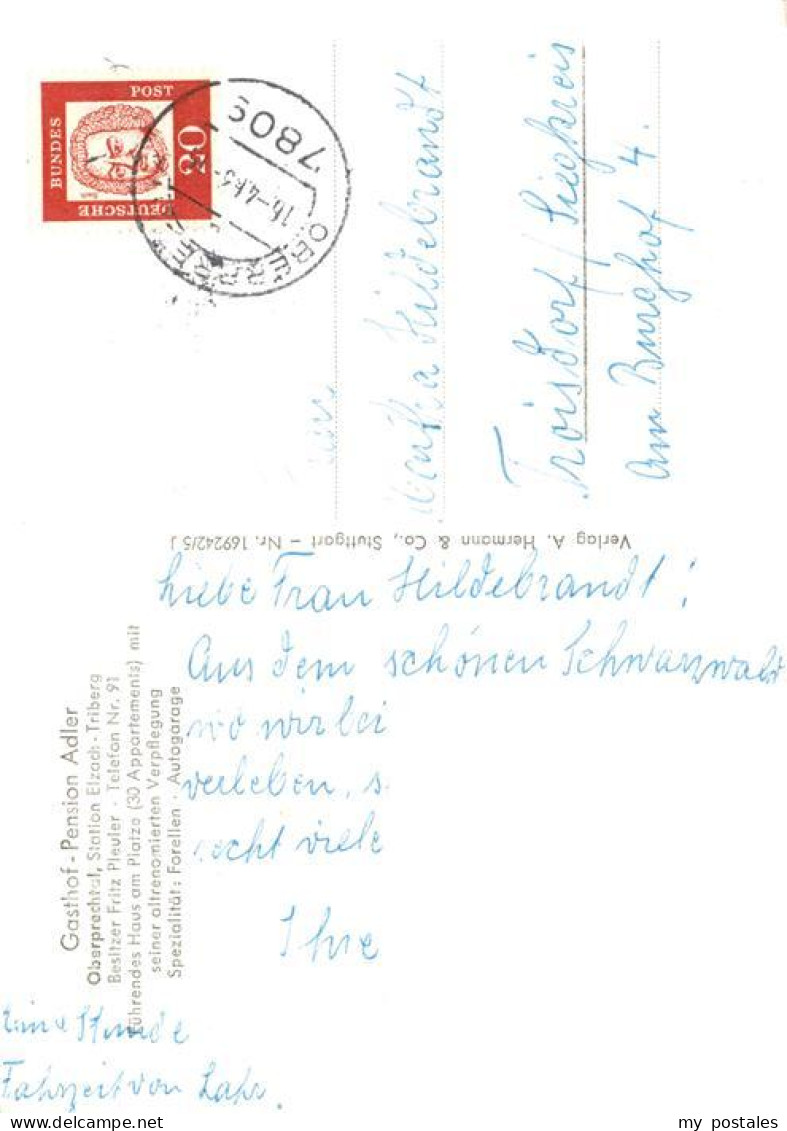 DEUTSCHE
BUNDES
POST
30
7809
OBERPRE
Hildebrandt
Troisdorf / Siegkreis
Am Burghof 4.
Verlag A. Hermann & Co., Stuttgart – Nr. 169242/5 J
Liebe Frau Hildebrandt!
Aus dem schönen Schwarzwald
wo wir bei
verleben, s
recht viele
Ihre
Gasthof - Pension Adler
Oberprechtal, Station Elzach - Triberg
Besitzer Fritz Pleuler · Telefon Nr. 91
führendes Haus am Platze (30 Appartements) mit
seiner altrenomierten Verpflegung
Spezialität: Forellen · Autogarage
Eine Stunde
Fahrzeit von Lahr.
my_postales